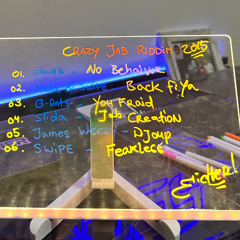 CRAZY JAB RIDDIM 2015
01. No Behaviour
02. Back FiYa
03. You Fraid
04. Slida - Jab Creation
05. James Weez Djoup
06. SWIPE - Fearless